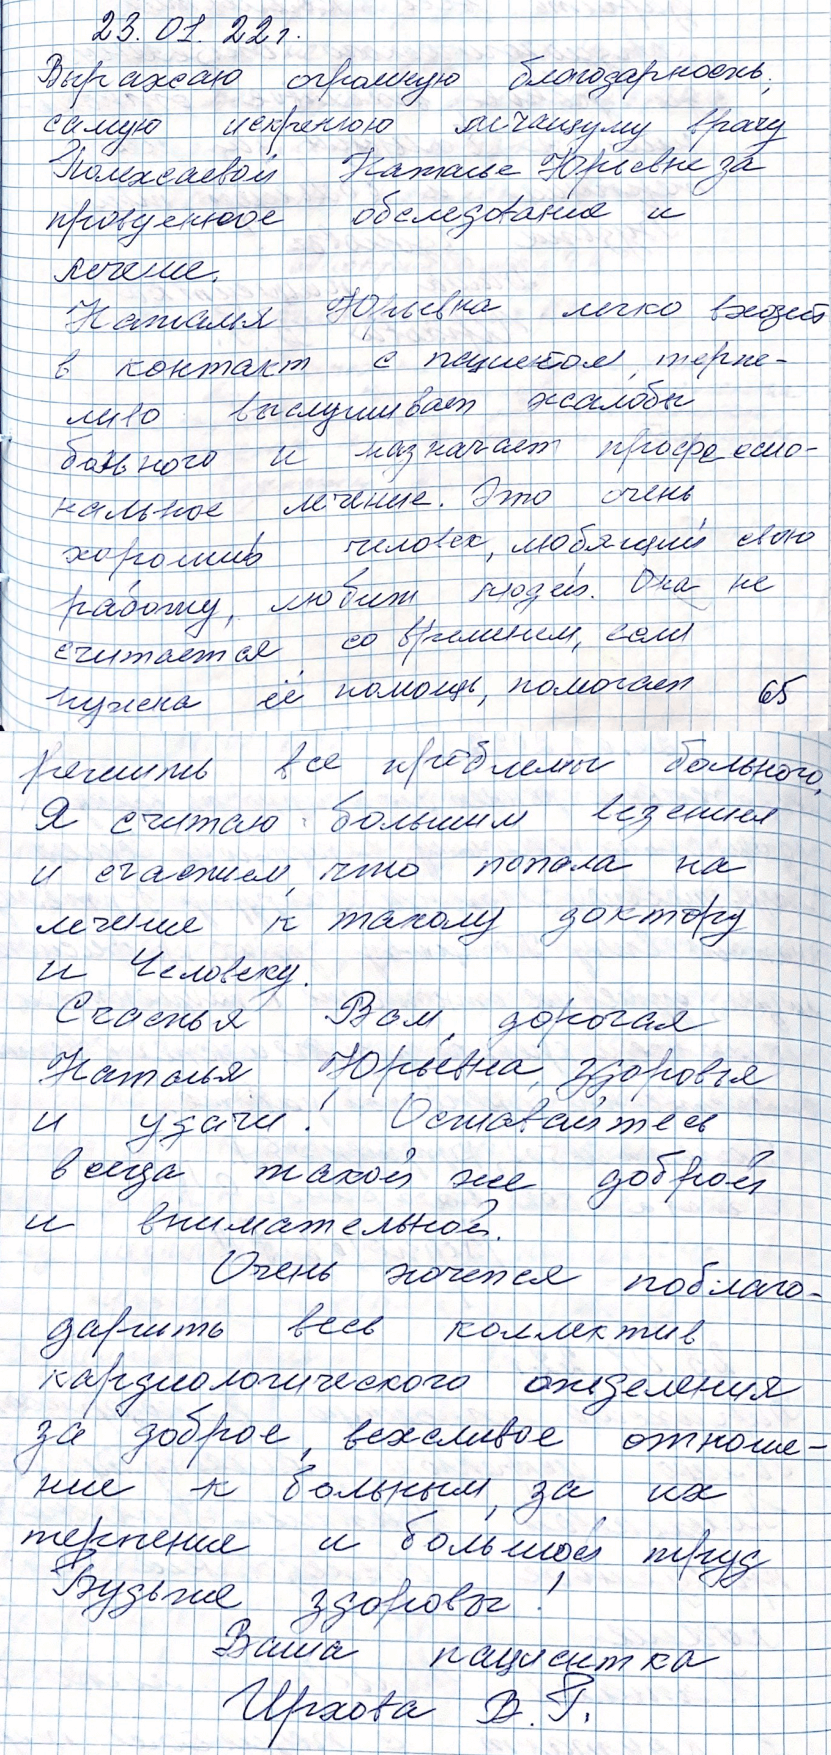 23.01.22г.
Выражаю огромную благодарность,
самую искреннюю лечащуму врачу
Наталье Юрьевне за
проведенное обследование и
лечение.
Наталья Юрьевна легко входит
в контакт с пациентом, терпе-
ливо выслушивает жалобы
больного и назначает професси-
нальное лечение. Это очень
хороший человек, любящий свою
работу, любит людей. Она не
считается со временем, если
нужна её помощь, помогает
65
решить все проблемы больного,
Я считаю большим везением
и счастьем, что попала на
лечение к такому доктору
и Человеку.
Счастья Вам, дорогая
Наталья Юрьевна, здоровья
и удачи! Оставайтесь
всегда такой же доброй
и внимательной.
Очень хочется поблаго-
дарить весь коллектив
кардиологического отделения
за доброе, вежливое отноше-
ние к больным, за их
терпение и большой труд
Будьте здоровы!
Ваша пациентка
В.Г.